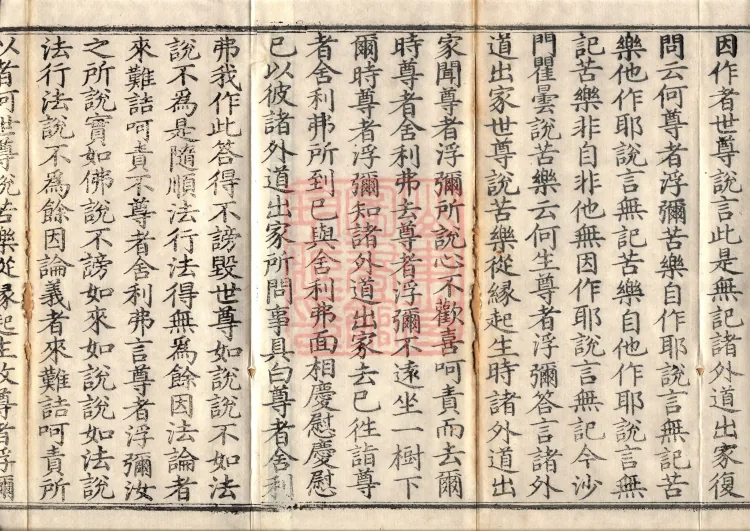 因作者世尊說言此是無記諸外道出家復
問云何尊者浮彌苦樂自作耶說言無記苦
樂他作耶說言無記苦樂自他作耶說言無
記苦樂非自非他無因作耶說言無記今沙
門瞿曇說苦樂云何生尊者浮彌答言諸外
道出家世尊說苦樂從緣起生時諸外道出
家聞尊者浮彌所說心不歡喜呵責而去爾
時尊者舍利弗去尊者浮彌不遠坐一樹下
爾時尊者浮彌知諸外道出家去已徃詣尊
者舍利弗所到已與舍利弗面相慶慰慶慰
已以彼諸外道出家所問事具白尊者舍利
弗我作此答得不謗毀世尊如說說不如法
說不爲是隨順法行法得無爲餘因法論者
來難詰呵責不尊者舍利弗言尊者浮彌汝
之所說實如佛說不謗如來如說說如法說
法行法說不爲餘因論義者來難詰呵責所
以者何世尊說苦樂從緣起生故尊者浮彌